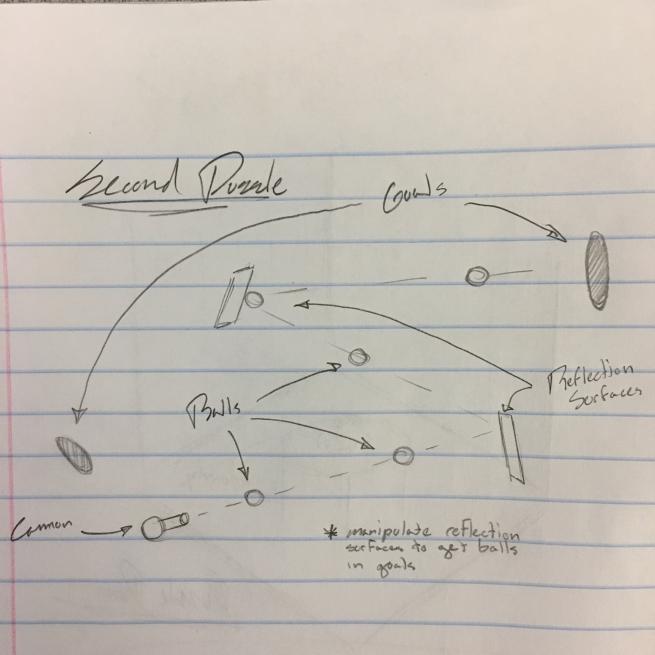 Second Puzzle
Goals
Reflection
Surfaces
Balls
Cannon
* manipulate reflection
surfaces to get balls
in goals